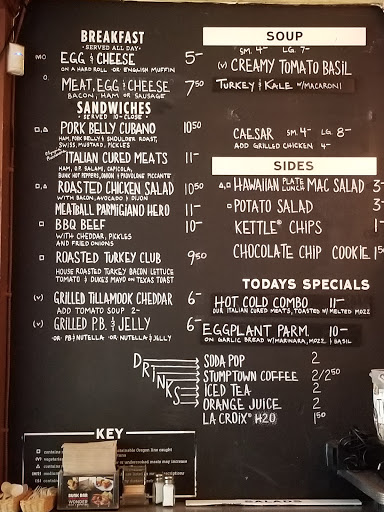 BREAKFAST
• SERVED ALL DAY •
MO EGG & CHEESE 5-
ON A HARD ROLL OR ENGLISH MUFFIN
O MEAT, EGG & CHEESE 7.50
BACON, HAM OR SAUSAGE
SANDWICHES
• SERVED 10-CLOSE •
PORK BELLY CUBANO 10.50
HAM, PORK BELLY & SHOULDER ROAST,
SWISS, MUSTARD, PICKLES
ITALIAN CURED MEATS 11-
HAM, O.P. SALAMI, CAPICOLA,
BUNK HOT PEPPERS, ONION & PROVOLONE PICCANTE
ROASTED CHICKEN SALAD 10.50
WITH BACON, AVOCADO & DIJON
MEATBALL PARMIGIANO HERO 11-
BBQ BEEF 10-
WITH CHEDDAR, PICKLES
AND FRIED ONIONS
ROASTED TURKEY CLUB 9.50
HOUSE ROASTED TURKEY BACON LETTUCE
TOMATO & DUKE'S MAYO ON TEXAS TOAST
(V) GRILLED TILLAMOOK CHEDDAR 6-
ADD TOMATO SOUP 2-
(V) GRILLED P.B. & JELLY 6-
OR PB & NUTELLA OR NUTELLA & JELLY
SOUP
SM. 4- LG. 7-
(V) CREAMY TOMATO BASIL
TURKEY & KALE W/MACARONI
CAESAR SM. 4- LG. 8-
ADD GRILLED CHICKEN 4-
SIDES
HAWAIIAN PLATE LUNCH MAC SALAD 3-
POTATO SALAD 3-
KETTLE® CHIPS 1-
CHOCOLATE CHIP COOKIE 1.50
TODAYS SPECIALS
HOT COLD COMBO 11-
OUR ITALIAN CURED MEATS, TOASTED W/MELTED MOZZ
EGGPLANT PARM 10-
ON GARLIC BREAD W/MARINARA, MOZZ & BASIL
DRINKS
SODA POP 2
STUMPTOWN COFFEE 2/2.50
ICED TEA 2
ORANGE JUICE 2
LA CROIX® H2O 1.50
KEY
BUNK BAR
WONDER
SALADS